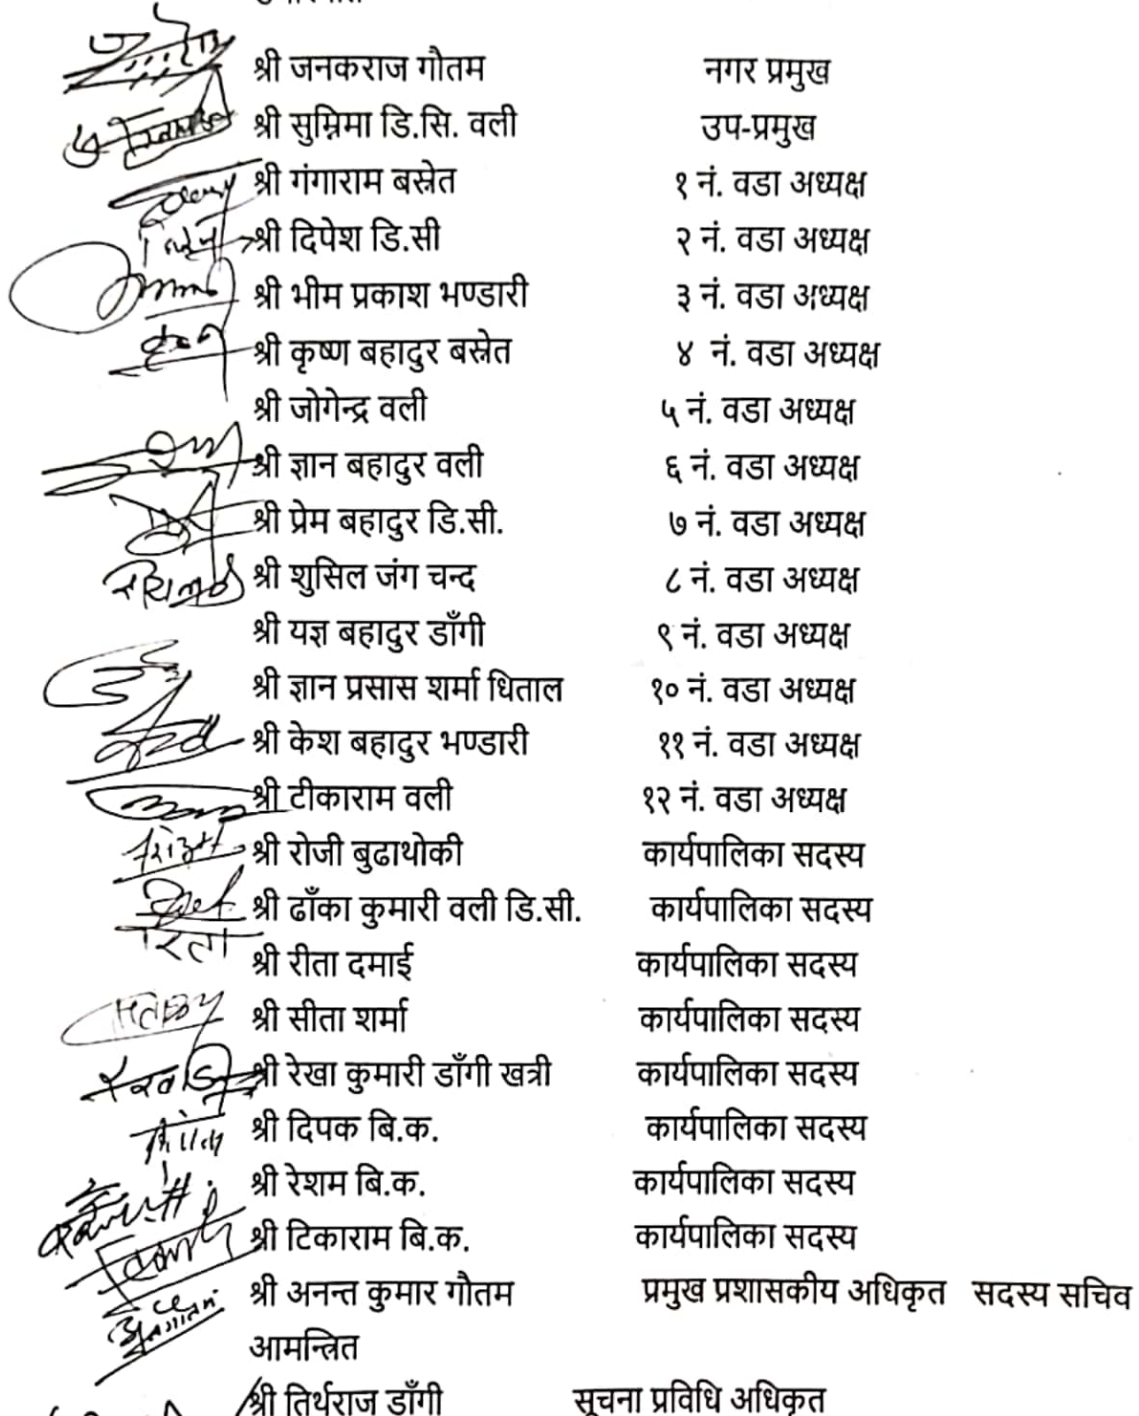 श्री जनकराज गौतम नगर प्रमुख
श्री सुम्निमा डि.सि. वली उप-प्रमुख
श्री गंगाराम बस्नेत १ नं. वडा अध्यक्ष
श्री दिपेश डि.सी २ नं. वडा अध्यक्ष
श्री भीम प्रकाश भण्डारी ३ नं. वडा अध्यक्ष
श्री कृष्ण बहादुर बस्नेत ४ नं. वडा अध्यक्ष
श्री जोगेन्द्र वली ५ नं. वडा अध्यक्ष
श्री ज्ञान बहादुर वली ६ नं. वडा अध्यक्ष
श्री प्रेम बहादुर डि.सी. ७ नं. वडा अध्यक्ष
श्री शुसिल जंग चन्द ८ नं. वडा अध्यक्ष
श्री यज्ञ बहादुर डाँगी ९ नं. वडा अध्यक्ष
श्री ज्ञान प्रसास शर्मा धिताल १० नं. वडा अध्यक्ष
श्री केश बहादुर भण्डारी ११ नं. वडा अध्यक्ष
श्री टीकाराम वली १२ नं. वडा अध्यक्ष
श्री रोजी बुढाथोकी कार्यपालिका सदस्य
श्री ढाँका कुमारी वली डि.सी. कार्यपालिका सदस्य
रिता
श्री रीता दमाई कार्यपालिका सदस्य
श्री सीता शर्मा कार्यपालिका सदस्य
श्री रेखा कुमारी डाँगी खत्री कार्यपालिका सदस्य
श्री दिपक बि.क. कार्यपालिका सदस्य
श्री रेशम बि.क. कार्यपालिका सदस्य
श्री टिकाराम बि.क. कार्यपालिका सदस्य
श्री अनन्त कुमार गौतम प्रमुख प्रशासकीय अधिकृत सदस्य सचिव
आमन्त्रित
श्री तिर्थराज डाँगी सूचना प्रविधि अधिकृत